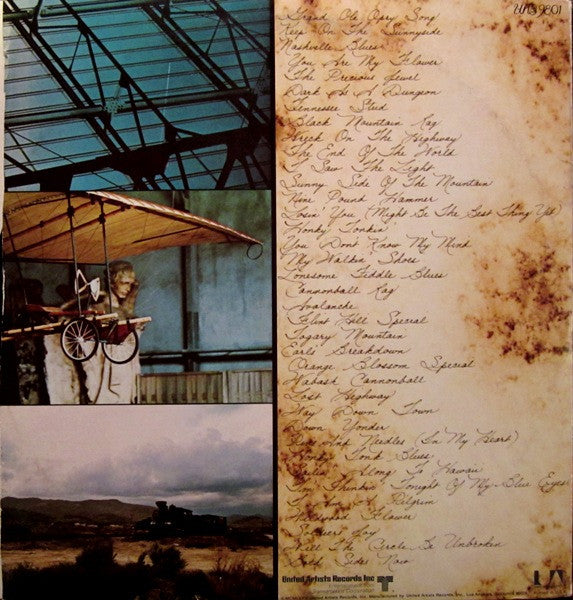 UAS 9801
Grand Ole Opry Song
Keep On The Sunnyside
Nashville Blues
You Are My Flower
The Precious Jewel
Dark As A Dungeon
Tennessee Stud
Black Mountain Rag
Wreck On The Highway
The End Of The World
I Saw The Light
Sunny Side Of The Mountain
Nine Pound Hammer
Losin' You (Might Be The Best Thing Yet)
Honky Tonkin'
You Dont Know My Mind
My Walkin' Shoes
Lonesome Fiddle Blues
Cannonball Rag
Avalanche
Flint Hill Special
Togary Mountain
Earls Breakdown
Orange Blossom Special
Wabash Cannonball
Lost Highway
Way Down Town
Down Yonder
Pins And Needles (In My Heart)
Honky Tonk Blues
Sailin' Along To Hawaii
I'm Thinkin' Tonight Of My Blue Eyes
I Am A Pilgrim
Wildwood Flower
Soldier's Joy
Will The Circle Be Unbroken
Both Sides Now
United Artists Records Inc
Entertainment from
Transamerica Corporation
UA